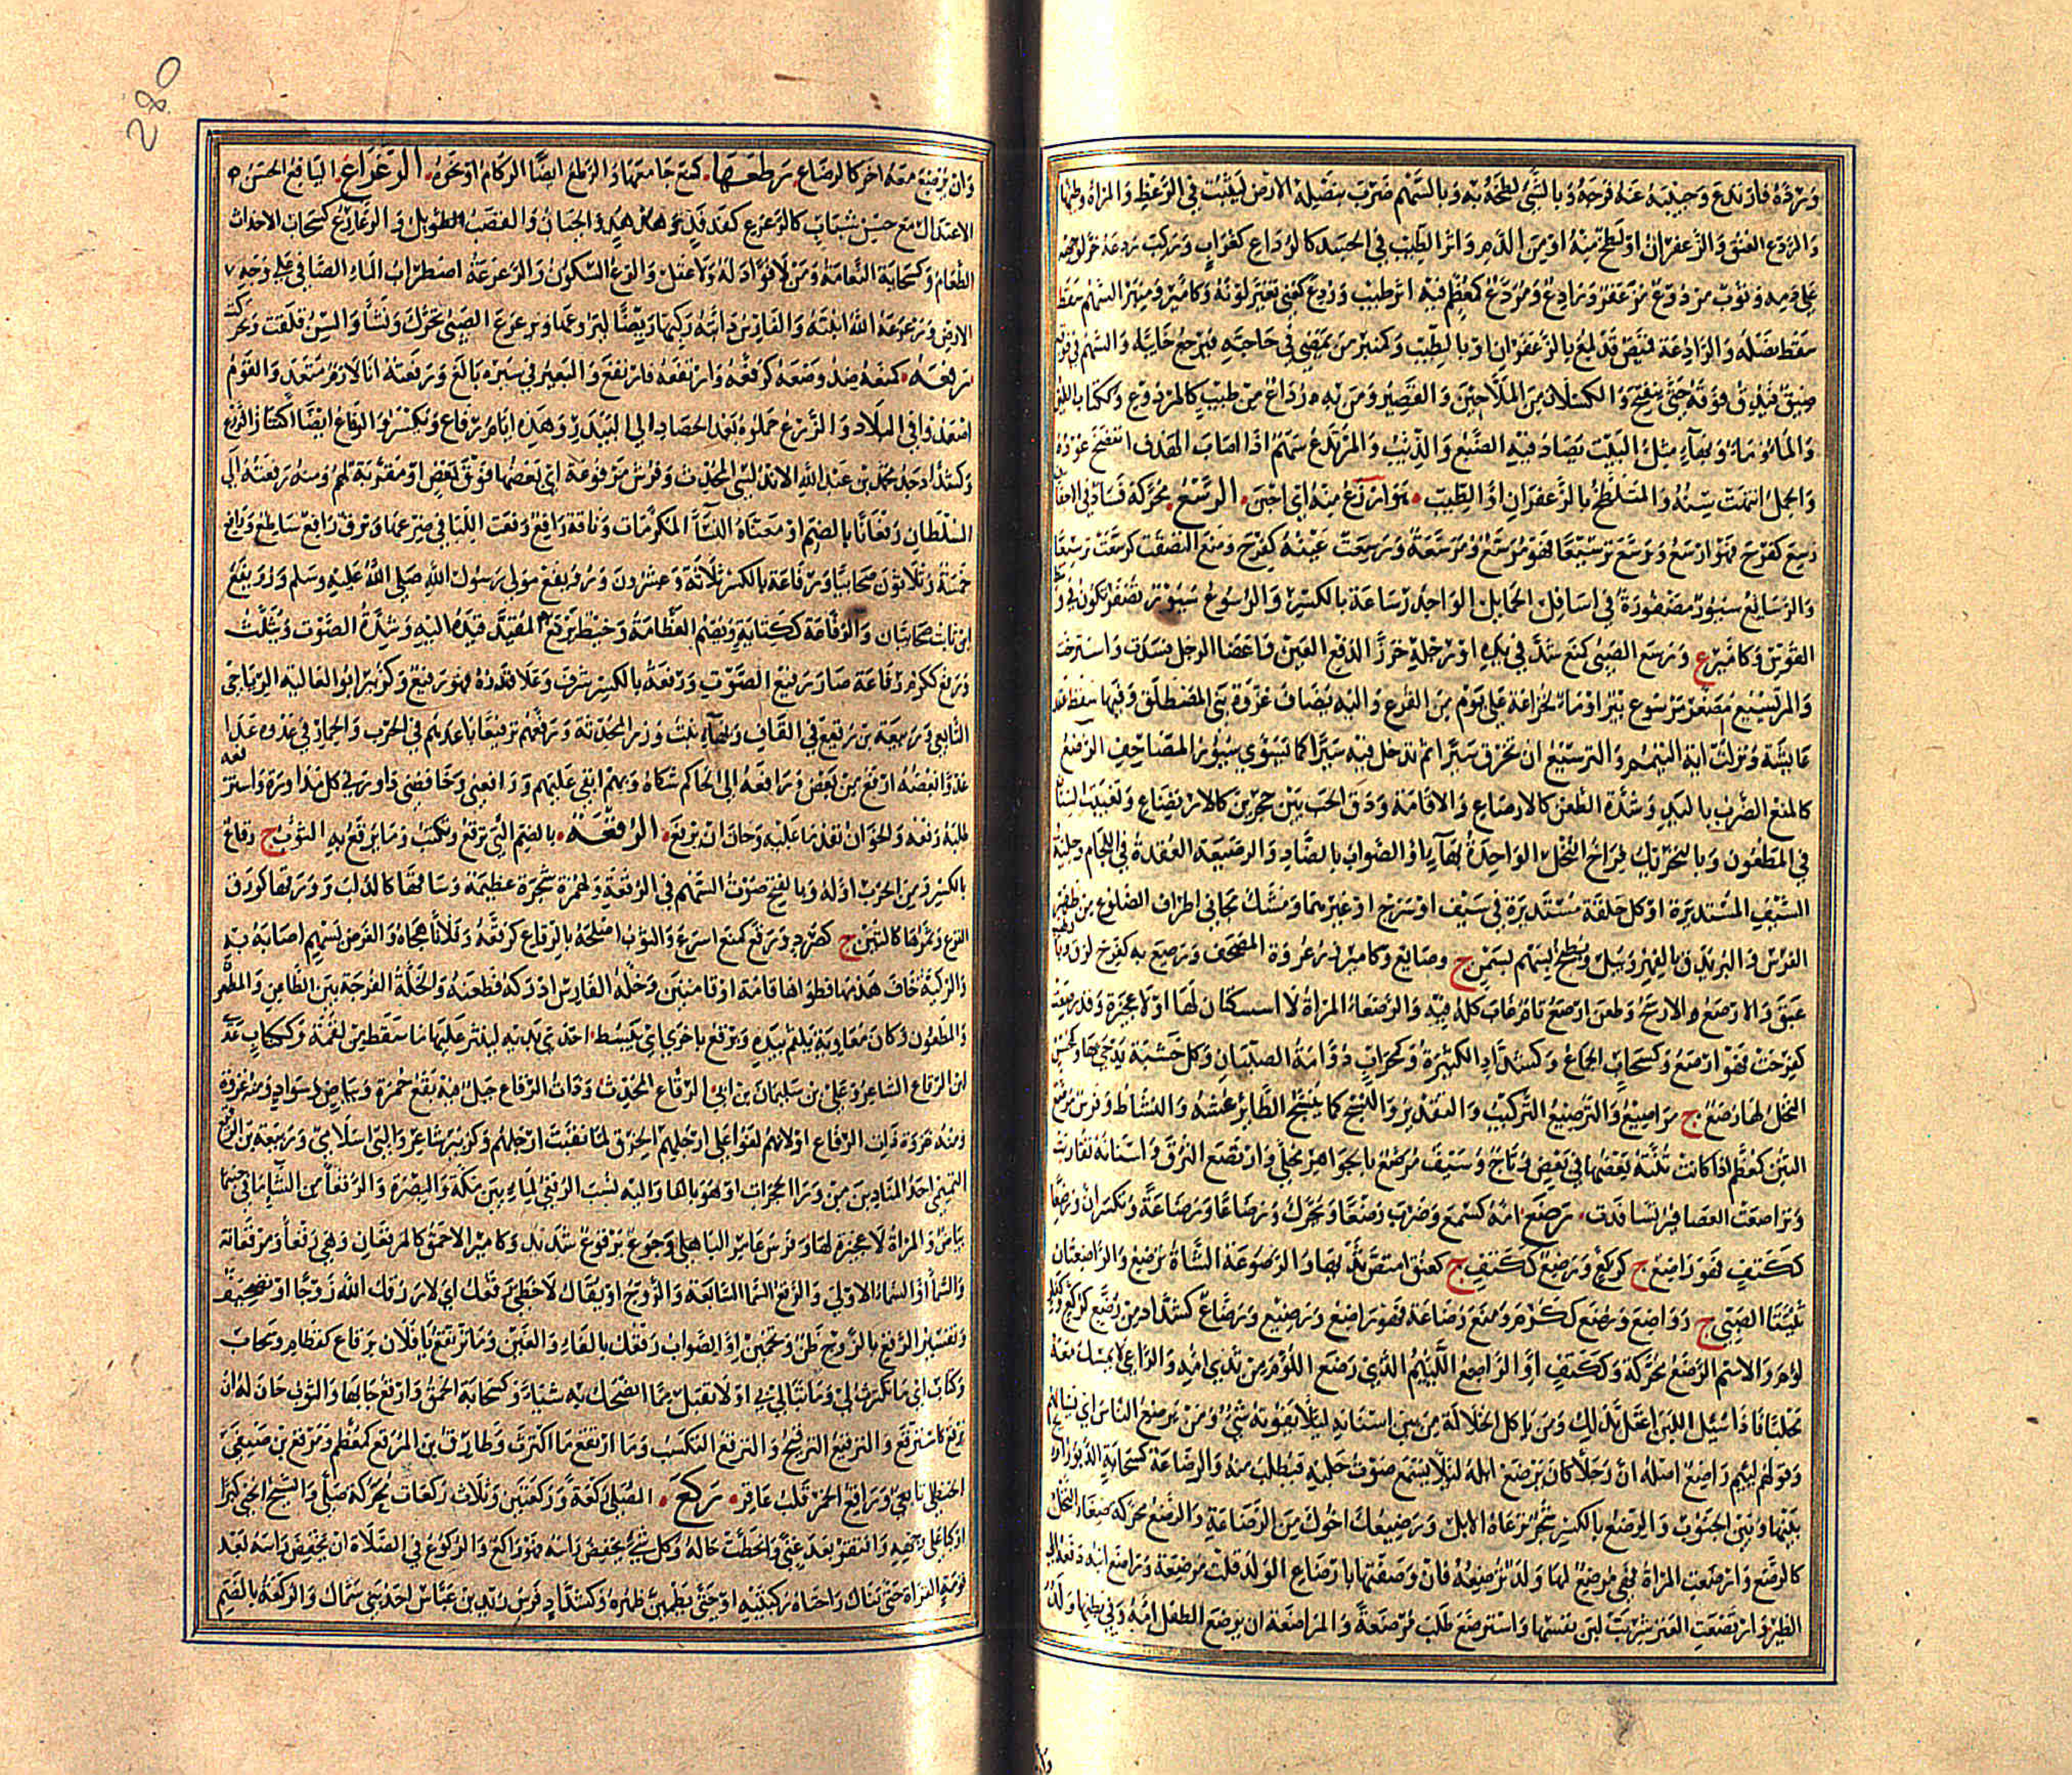 وردة فارتدع وجيبه عنه فرجه وبالشئ لطخه به وبالسهم ضرب بنصله الارض ليثبت في الرعظ والمراة وطئها
والردع العنق والزعفران او لطخ منه او من الدم واثر الطيب في الجسد كالرداع كغراب وركب ردعه خر لوجهه
على دمه وثوب مردوع مزعفر ورادع ومردع كمعظم فيه اثر طيب وردع كعني تغير لونه وكامير ومنبر السهم سقط
سقط نصله والرادعة قميص قد لمع بالزعفران او بالطيب وكمنبر من يمضي في حاجته فيرجع خايبا والسهم في فوقه
ضيق فيدق فوقه حتى ينفتح والكسلان من الملاحين والقصير ومن به رداع من طيب كالمردوع وككتاب الطين
والماء وماء وبهاء مثل البيت يصاد فيه الضبع والذئب والمرتدع سهم اذا اصاب الهدف انفضخ عوده
والجمل انتهت سنه والمتلطخ بالزعفران او الطيب هو اردع منه اي اجبن الرسع محركة فساد في الاجفان
رسع كفرح فهو ارسع ورسع ترسيعا فهو مرسع ومرسعة ورسعت عينه كفرح ومنع التصقت كرسعت ترسيعا
والرسايع سيور مضفورة في اسافل الحمايل الواحد رساعة بالكسر والرسوع سيور تضفر تكون في وسط
القوس وكامير ع ورسع الصبي كمنع شد في يده او رجله خرزا لدفع العين واعضا الرجل فسدت واسترخت
والمريسيع مصغر مرسوع بئر او ماء لخزاعة على يوم من الفرع واليه يضاف غزوة بني المصطلق وفيها سقط عقد
عايشة ونزلت اية التيمم والترسيع ان تخرق سيرا ثم تدخل فيه سيرا كما تسوي سيور المصاحف الرصع
كالمنع الضرب باليد وشدة الطعن كالارصاع والاقامة ودق الحب بين حجرين كالارتصاع وتغييب السنان
في المطعون وبالتحريك فراخ النخل الواحدة بهاء او الصواب بالضاد والرصيعة العقدة في اللجام وحلية
السيف المستديرة او كل حلقة مستديرة في سيف او سرج او غيرهما ومشك محاني اطراف الضلوع من ظهر
الفرس والبر يدق بالفهر ويبل ويطبخ بسمن ج رصايع وكامير زر عروة المصحف ورصع به كفرح لزق
عبق والارصع الارسح وطعن ارصع تام غاب كله فيه والرصعاء المرأة لا اسكتان لها او لا عجيزة وقد رصعت
كفرحت فهو ارصع وكسحاب الجماع وكشداد الكثيره وكمحراب دوامة الصبيان وكل خشبة يدحى بها وكمحسن
النخل لها رصع ج مراصيع والترصيع التركيب والتقدير والنسج كما ينسج الطاير عشه والنشاط وفرس مرصع
الثنن كمعظم اذا كانت ثننه بعضها في بعض وتاج وسيف مرصع بالجواهر محلى وارتصع التزق واسنانه تقاربت
وتراصعت العصافير تسافدت رضع امه كسمع وضرب رضعا ويحرك ورضاعا ورضاعة ويكسران ورضعا
ككتف فهو راضع ج كركع ورضع ككتف ج كعنق امتص ثديها والرضوعة الشاة ترضع والراضعتان
ثنيتا الصبي ج رواضع ورضع ككرم ومنع رضاعة فهو راضع ورضيع ورضاع كشداد من رضع كركع وكفار
لؤم والاسم الرضع محركة وككتف او الراضع اللئيم الذي رضع اللؤم من ثدي امه والراعي لا يمسك معه
محلبا فاذا سئل اللبن اعتل بذلك ومن ياكل الخلالة من بين اسنانه لئلا يفوته شئ ومن يرضع الناس اي يسالهم
وقولهم لئيم راضع اصله ان رجلا كان يرضع ابله لئلا يسمع صوت حلبه فيطلب منه والرضاعة كسحابة الدبور او ريح
بينها وبين الجنوب والرضع بالكسر شجر ترعاه الابل ورضيعك اخوك من الرضاعة والرضع محركة صغار النحل
كالرصع وارضعت المراة فهي مرضع لها ولد ترضعه فان وصفتها بارضاع الولد قلت مرضعة وراضع ابنه دفعه الى
الظئر وارتضعت العنز شربت لبن نفسها واسترضع طلب مرضعة والمراضعة ان يرضع الطفل امه وفي بطنها ولد
280
وان يرضع معه اخر كالرضاع رطعها كمنع جامعها والرطع ايضا الزكام او نحوه الرعراع اليافع الحسن
الاعتدال مع حسن شباب كالرعرع كفدفد وهدهد والجبان والقصب الطويل والرعاع كسحاب الاحداث
الطغام وكسحابة النعامة ومن لا فؤاد له ولا عقل والرع السكون والرعرعة اضطراب الماء الصافي على وجه
الارض ورعرعه الله انبته والفارس دابته ركبها ريضا ليروضها وترعرع الصبي تحرك ونشا والسن قلقت وتحركت
رفعه كمنعه ضد وضعه كرفعه وارتفعه فارتفع والبعير في سيره بالغ ورفعته انا لازم متعد والقوم
اصعدوا في البلاد والزرع حملوه بعد الحصاد الى البيدر وهذه ايام رفاع وتكسر والرفاع ايضا اكتناز الزرع
وكشداد جد محمد بن عبد الله الاندلسي المحدث وفرش مرفوعة اي بعضها فوق بعض او مقربة لهم ومنه رفعته الى
السلطان رفعانا بالضم او معناه النساء المكرمات وناقة رافع رفعت اللبا في ضرعها وبرق رافع ساطع ورافع
خمسة وثلاثون صحابيا ورفاعة بالكسر ثلاثة وعشرون ورويفع مولى رسول الله صلى الله عليه وسلم ورويفع
ابن ثابت صحابيان والرفاعة ككتابة ويضم العظامة وخيط يرفع به المقيد قيده اليه وشدة الصوت ويثلث
ورفع ككرم رفاعة صار رفيع الصوت ورفعة بالكسر شرف وعلا قدره فهو رفيع وكزبير ابو العالية الرياحي
التابعي وربيعة بن رفيع في القاف وبهاء بنت وزر المحدثة ورفعهم ترفيعا باعدهم في الحرب والحمار في عدوه عدا
عدوا بعضه ارفع من بعض ورافعه الى الحاكم شكاه وبهم ابقى عليهم ورافعني وخافضني داورني كل مداورة واسترفعه
طلب رفعه والخوان نفد ما عليه وحان ان يرفع الرقعة بالضم التي ترقع وتكتب وما يرقع به الثوب ج رقاع
بالكسر ومن الجرب اوله وبالفتح صوت السهم في الرقعة وكهمزة شجرة عظيمة وساقها كالدلب وورقها كورق
القرع وثمرها كالتين ج كصرد ورقع كمنع اسرع والثوب اصلحه بالرقاع كرقعه وفلانا هجاه والغرض بسهم اصابه به
والركية خاف هدمها فطواها قامة او قامتين وخلة الفارس ادركه فطعنه والخلة الفرجة بين الطاعن والمطعون
والمطعون وكان معاوية يلقم بيده ويرقع باخرى اي يبسط احدى يديه لينتثر عليها ما سقط من لقمه وككتاب عدي
ابن الرقاع الشاعر وعلي بن سليمان بن ابي الرقاع المحدث وذات الرقاع جبل فيه بقع حمرة وبياض وسواد ومنه غزوة
ومنه غزوة ذات الرقاع او لانهم لفوا على ارجلهم الخرق لما نقبت ارجلهم وكزبير شاعر والبى اسلامي وربيعة بن الرقيع
التميمي احد المنادين من وراء الحجرات او هو بالفاء واليه نسب الرقيعي لماء بين مكة والبصرة والرقعاء من الشاء ما في جنبها
بياض والمراة لا عجيزة لها وفرس عامر الباهلي وجوع يرقوع شديد وكامير الاحمق كالمرقعان وهي رقعاء ومرقعانة
والسماء او السماء الاولى والرقع السماء السابعة والزوج او يقال لا حظي رقعك اي لا رزقك الله زوجا او تصحيف
وتفسير الرقع بالزوج ظن وتخمين او الصواب رفغك بالفاء والغين وما ترتقع يا فلان برقاع كقطام وسحاب
وكتاب اي ما تكترث لي وما تبالي بي او لا تقبل مما انصحك به شيئا وكسحابة الحمق وارقع جا بها والثوب حان له ان
يرقع كاسترقع والترقيع الترقيح والترقع التكسب وما ارتقع ما اكترث وطارق بن المرقع كمعظم ومرقع بن صيفي
الحنظلي تابعي ورافع الخمر قلب عاقر ركع المصلي ركعة وركعتين وثلاث ركعات محركة صلى والشيخ انحنى كبرا
او كبا على وجهه وافتقر بعد غنى وانحطت حاله وكل شئ يخفض راسه فهو راكع والركوع في الصلاة ان يخفض راسه بعد
قومة القراة حتى تنال راحتاه ركبتيه او حتى يطمئن ظهره وكشداد فرس زيد بن عباس احد بني سماك والركعة بالضم